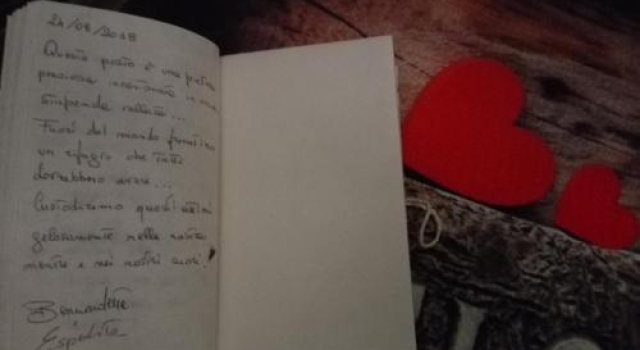 24/08/2018
Questo posto è una pietra
preziosa incastonata in una
stupenda vallata...
Fuori dal mondo frenetico
un rifugio che tutti
dovrebbero avere...
Custodiremo questi attimi
gelosamente nella nostra
mente e nei nostri cuori.
Bernardetta
Espedito